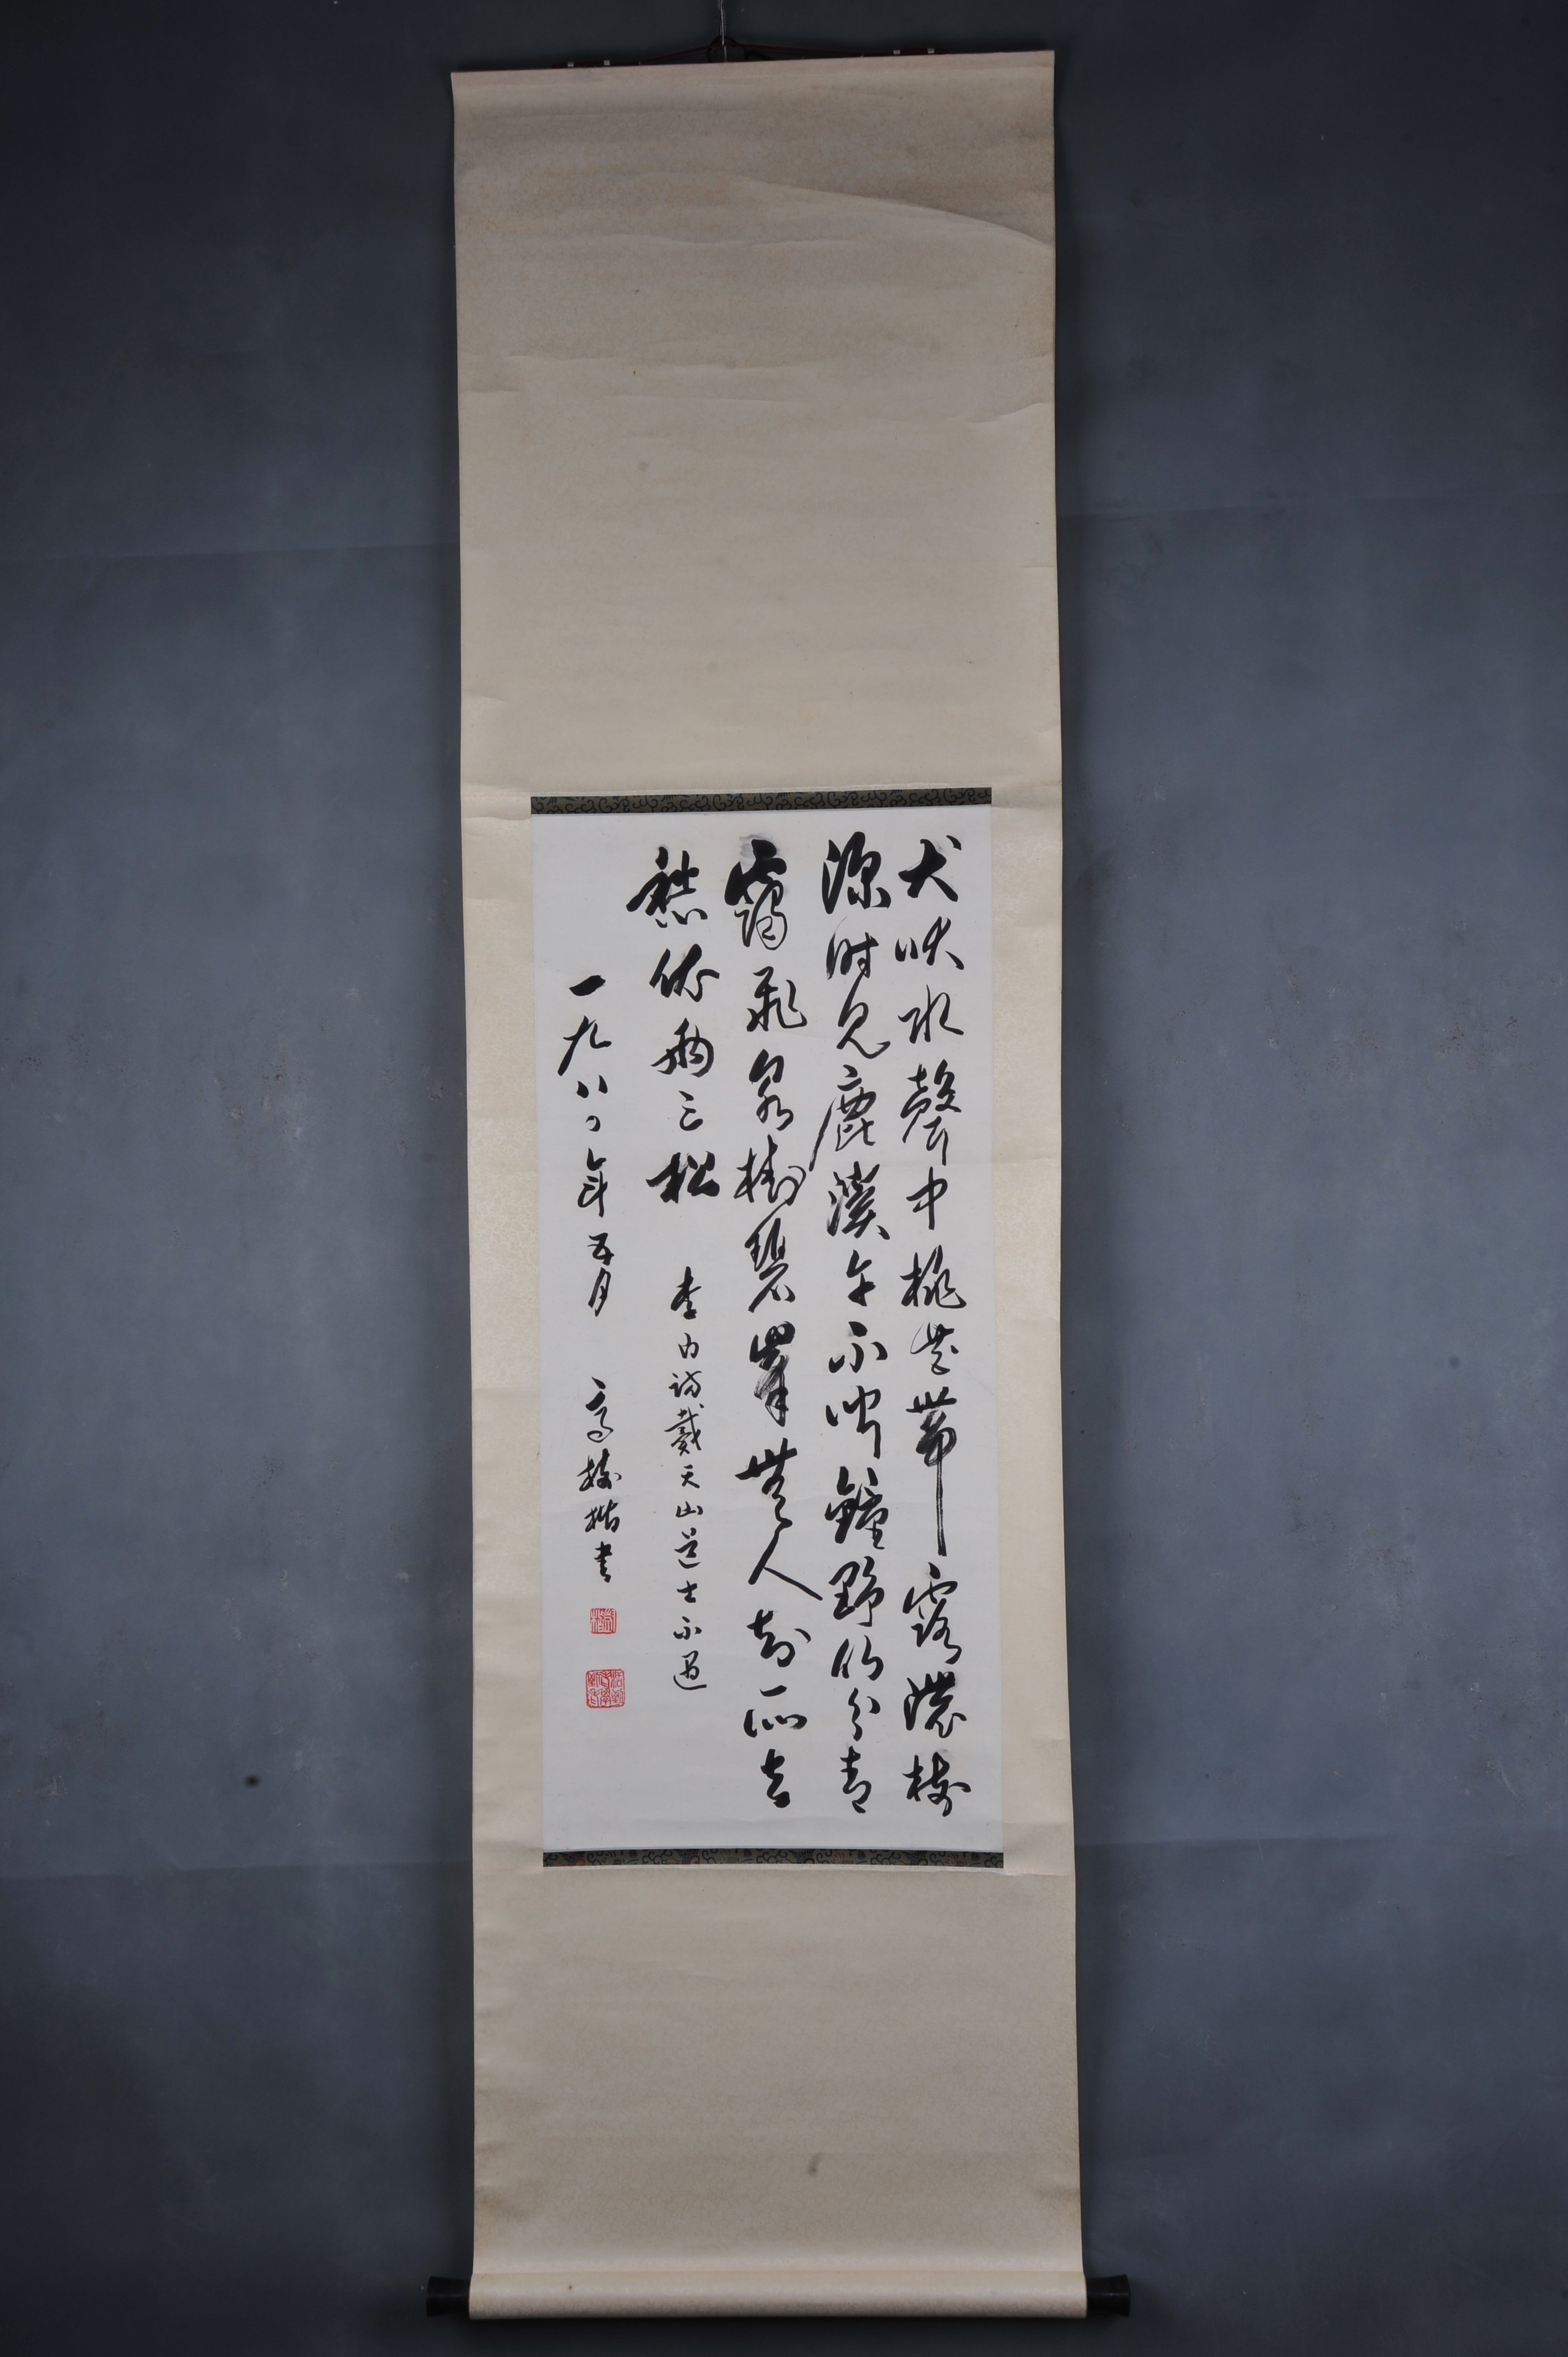 犬吠水聲中桃花帶露濃樹
深時見鹿溪午不聞鐘野竹分青
靄飛泉掛碧峯無人知所去
愁依兩三松
李白訪戴天山道士不遇
一九八〇年五月
高樹楷書